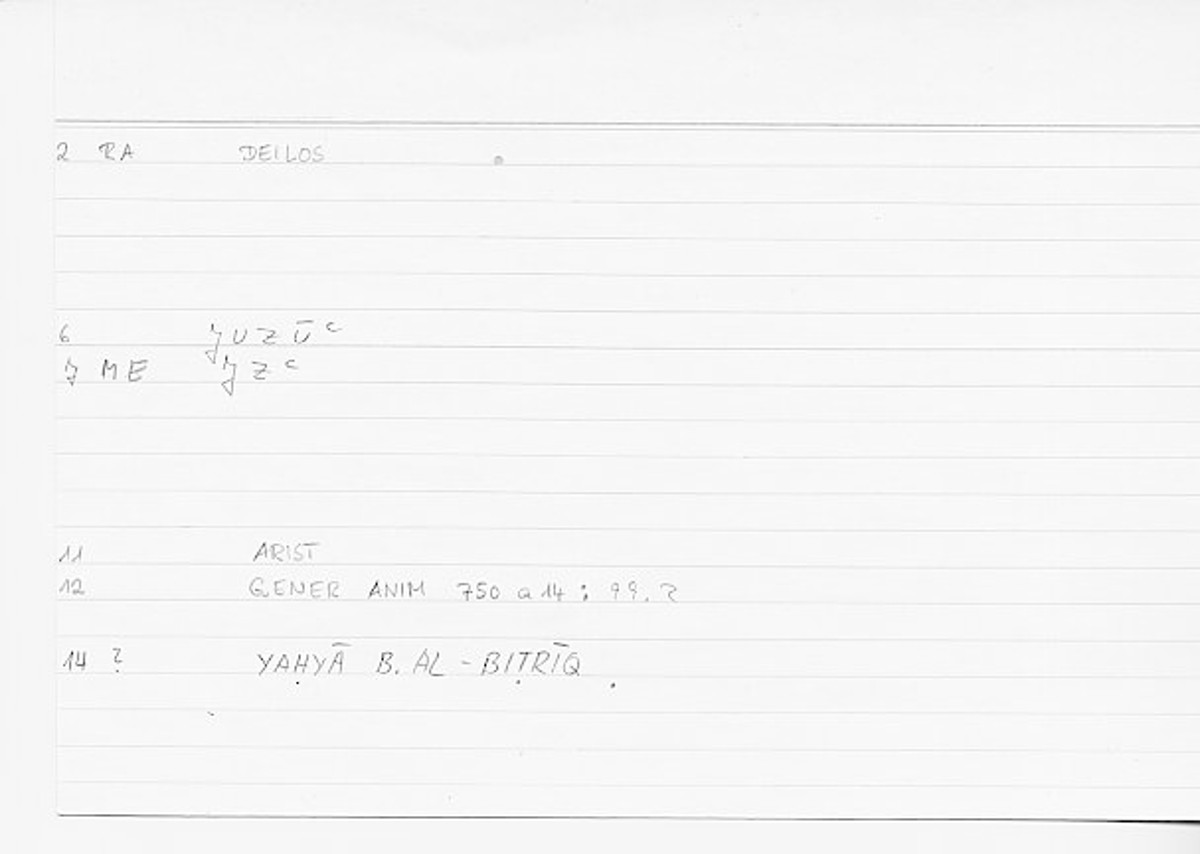 2 RA DEILOS
6 ǰuzūʿ
7 ME ǰzʿ
11 ARIST
12 GENER ANIM 750 a 14 : 99.2
14 ? YAḤYĀ B. AL-BIṬRĪQ.